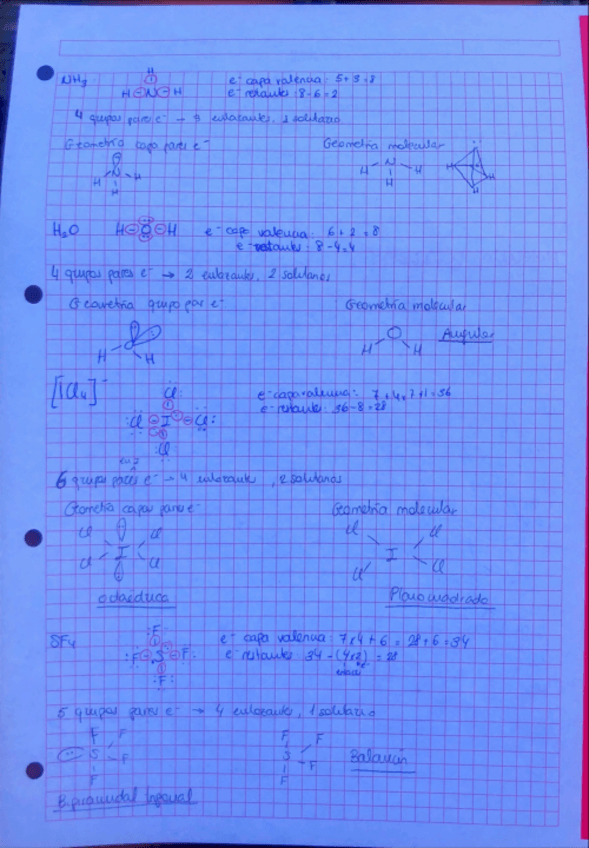 NH₃
H
H N H
e⁻ capa valencia: 5+3=8
e⁻ restantes: 8-6=2
4 grupos pares e⁻ → 3 enlazantes, 1 solitario
Geometría capa pares e⁻
Geometría molecular
N
H H
H
N
H H
H
H
H
H₂O
H O H
e⁻ capa valencia: 6+2=8
e⁻ restantes: 8-4=4
4 grupos pares e⁻ → 2 enlazantes, 2 solitarios
Geometría grupo par e⁻
Geometría molecular
H H
O
H H
Angular
[ICl₄]⁻
Cl
Cl I Cl
Cl
e⁻ capa valencia: 7+4×7+1=36
e⁻ restantes: 36-8=28
6 grupos pares e⁻ → 4 enlazantes, 2 solitarios
Geometría capas pares e⁻
Geometría molecular
Cl Cl
I
Cl Cl
Cl Cl
I
Cl Cl
octaédrica
Plano cuadrado
SF₄
F
F S F
F
e⁻ capa valencia: 7×4+6=28+6=34
e⁻ restantes 34-(4×2)=28
5 grupos pares e⁻ → 4 enlazantes, 1 solitario
F F
S F
F
F F
S F
F
Balancín
Bipiramidal trigonal